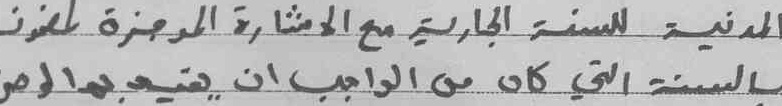 المدنية للسنة الجارية مع الاشارة الموجزة لمضمون
بالسنة التي كان من الواجب ان يقيد بها